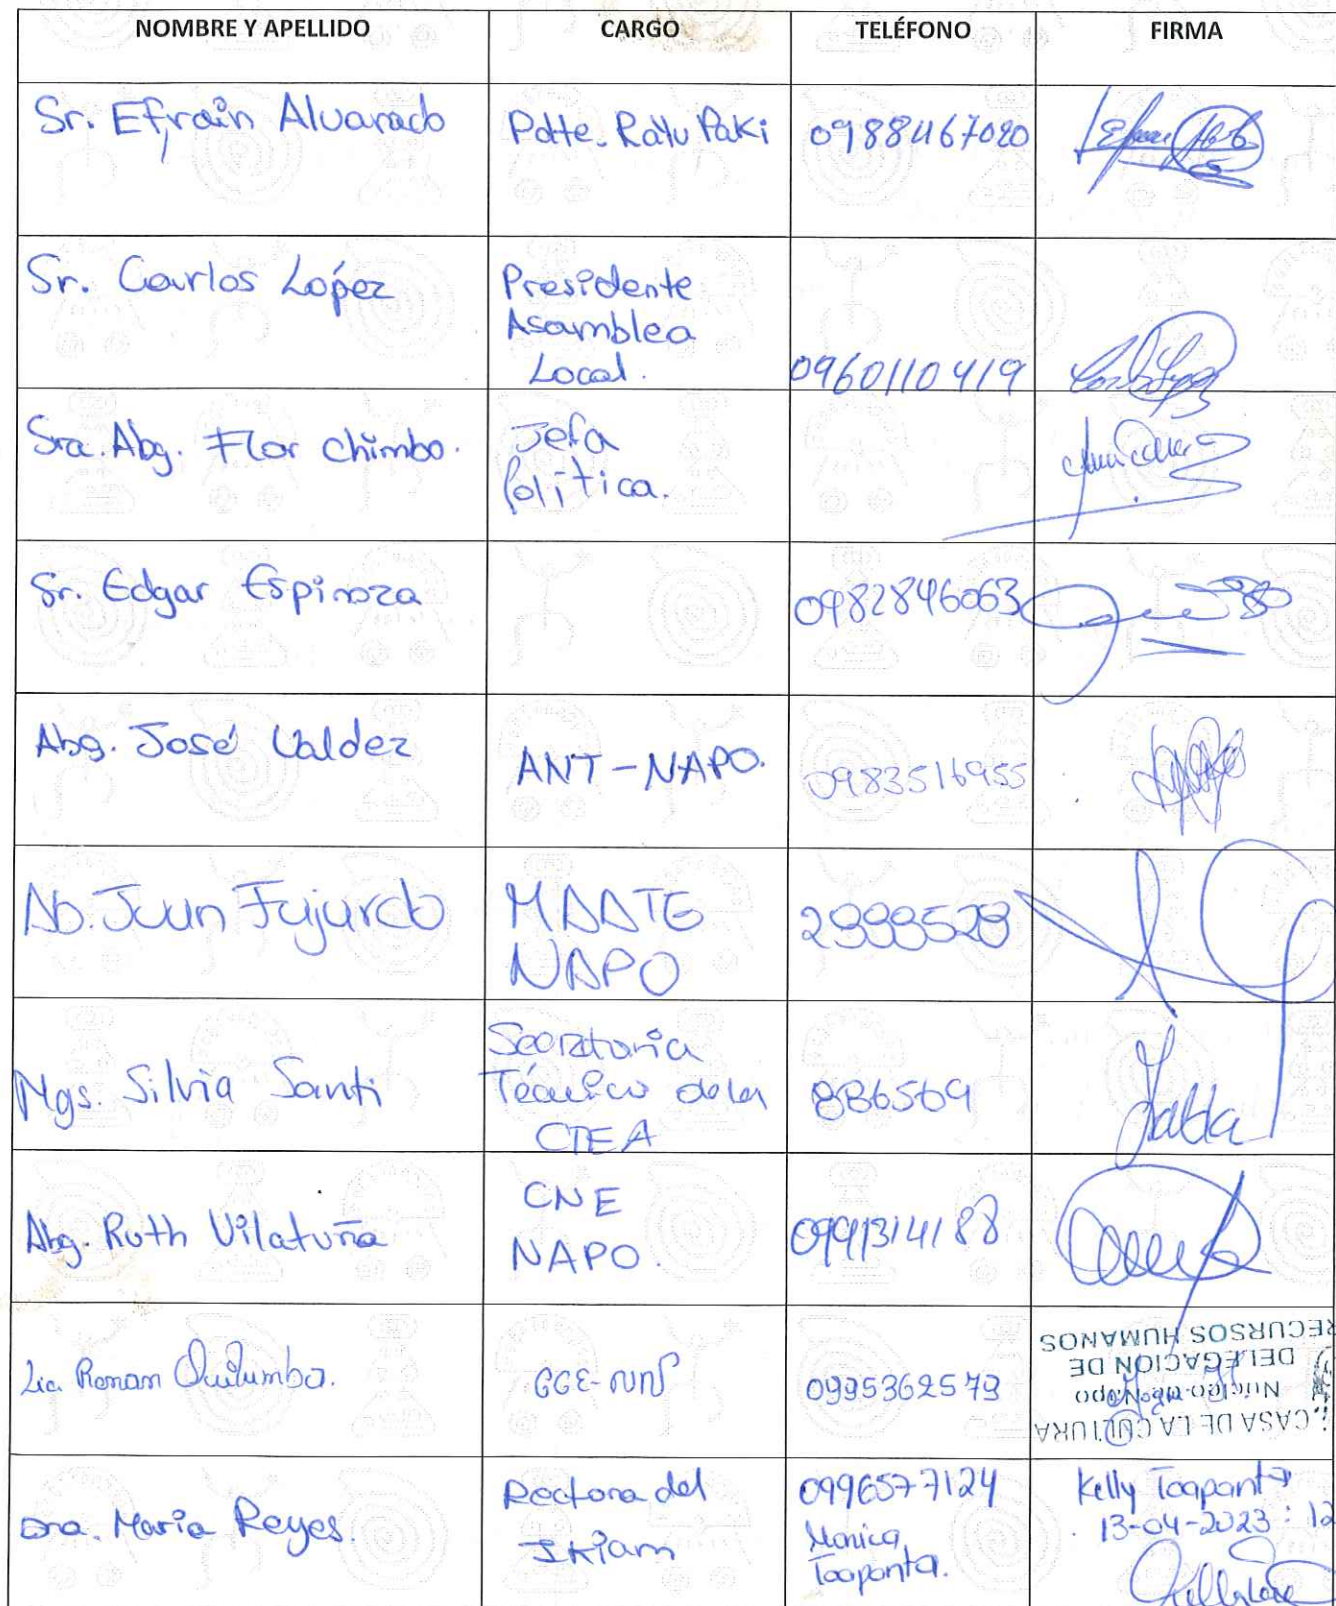 NOMBRE Y APELLIDO CARGO TELÉFONO FIRMA
Sr. Efraín Alvarado Pdte. Ratu Paki 0988467020
Sr. Carlos López Presidente
Asamblea
Local. 0960110419
Sra. Abg. Flor Chimbo. Jefa
Política.
Sr. Edgar Espinoza 0982846063
Abg. José Valdez ANT-NAPO. 0983516955
Ab. Juan Fajardo MAATE
NAPO 2999528
Mgs. Silvia Santi Secretaria
Técnico de la
CTEA 886569
Abg. Ruth Vilatuña CNE
NAPO. 0991314188
Lic. Renan Quilumba. CCE-NNP 0995362579
CASA DE LA CULTURA
Núcleo de Napo
DELEGACIÓN DE
RECURSOS HUMANOS
Dra. María Reyes. Rectora del
Ikiam
0996577124
Monica
Toapanta.
Kelly Toapanta
13-04-2023: 12